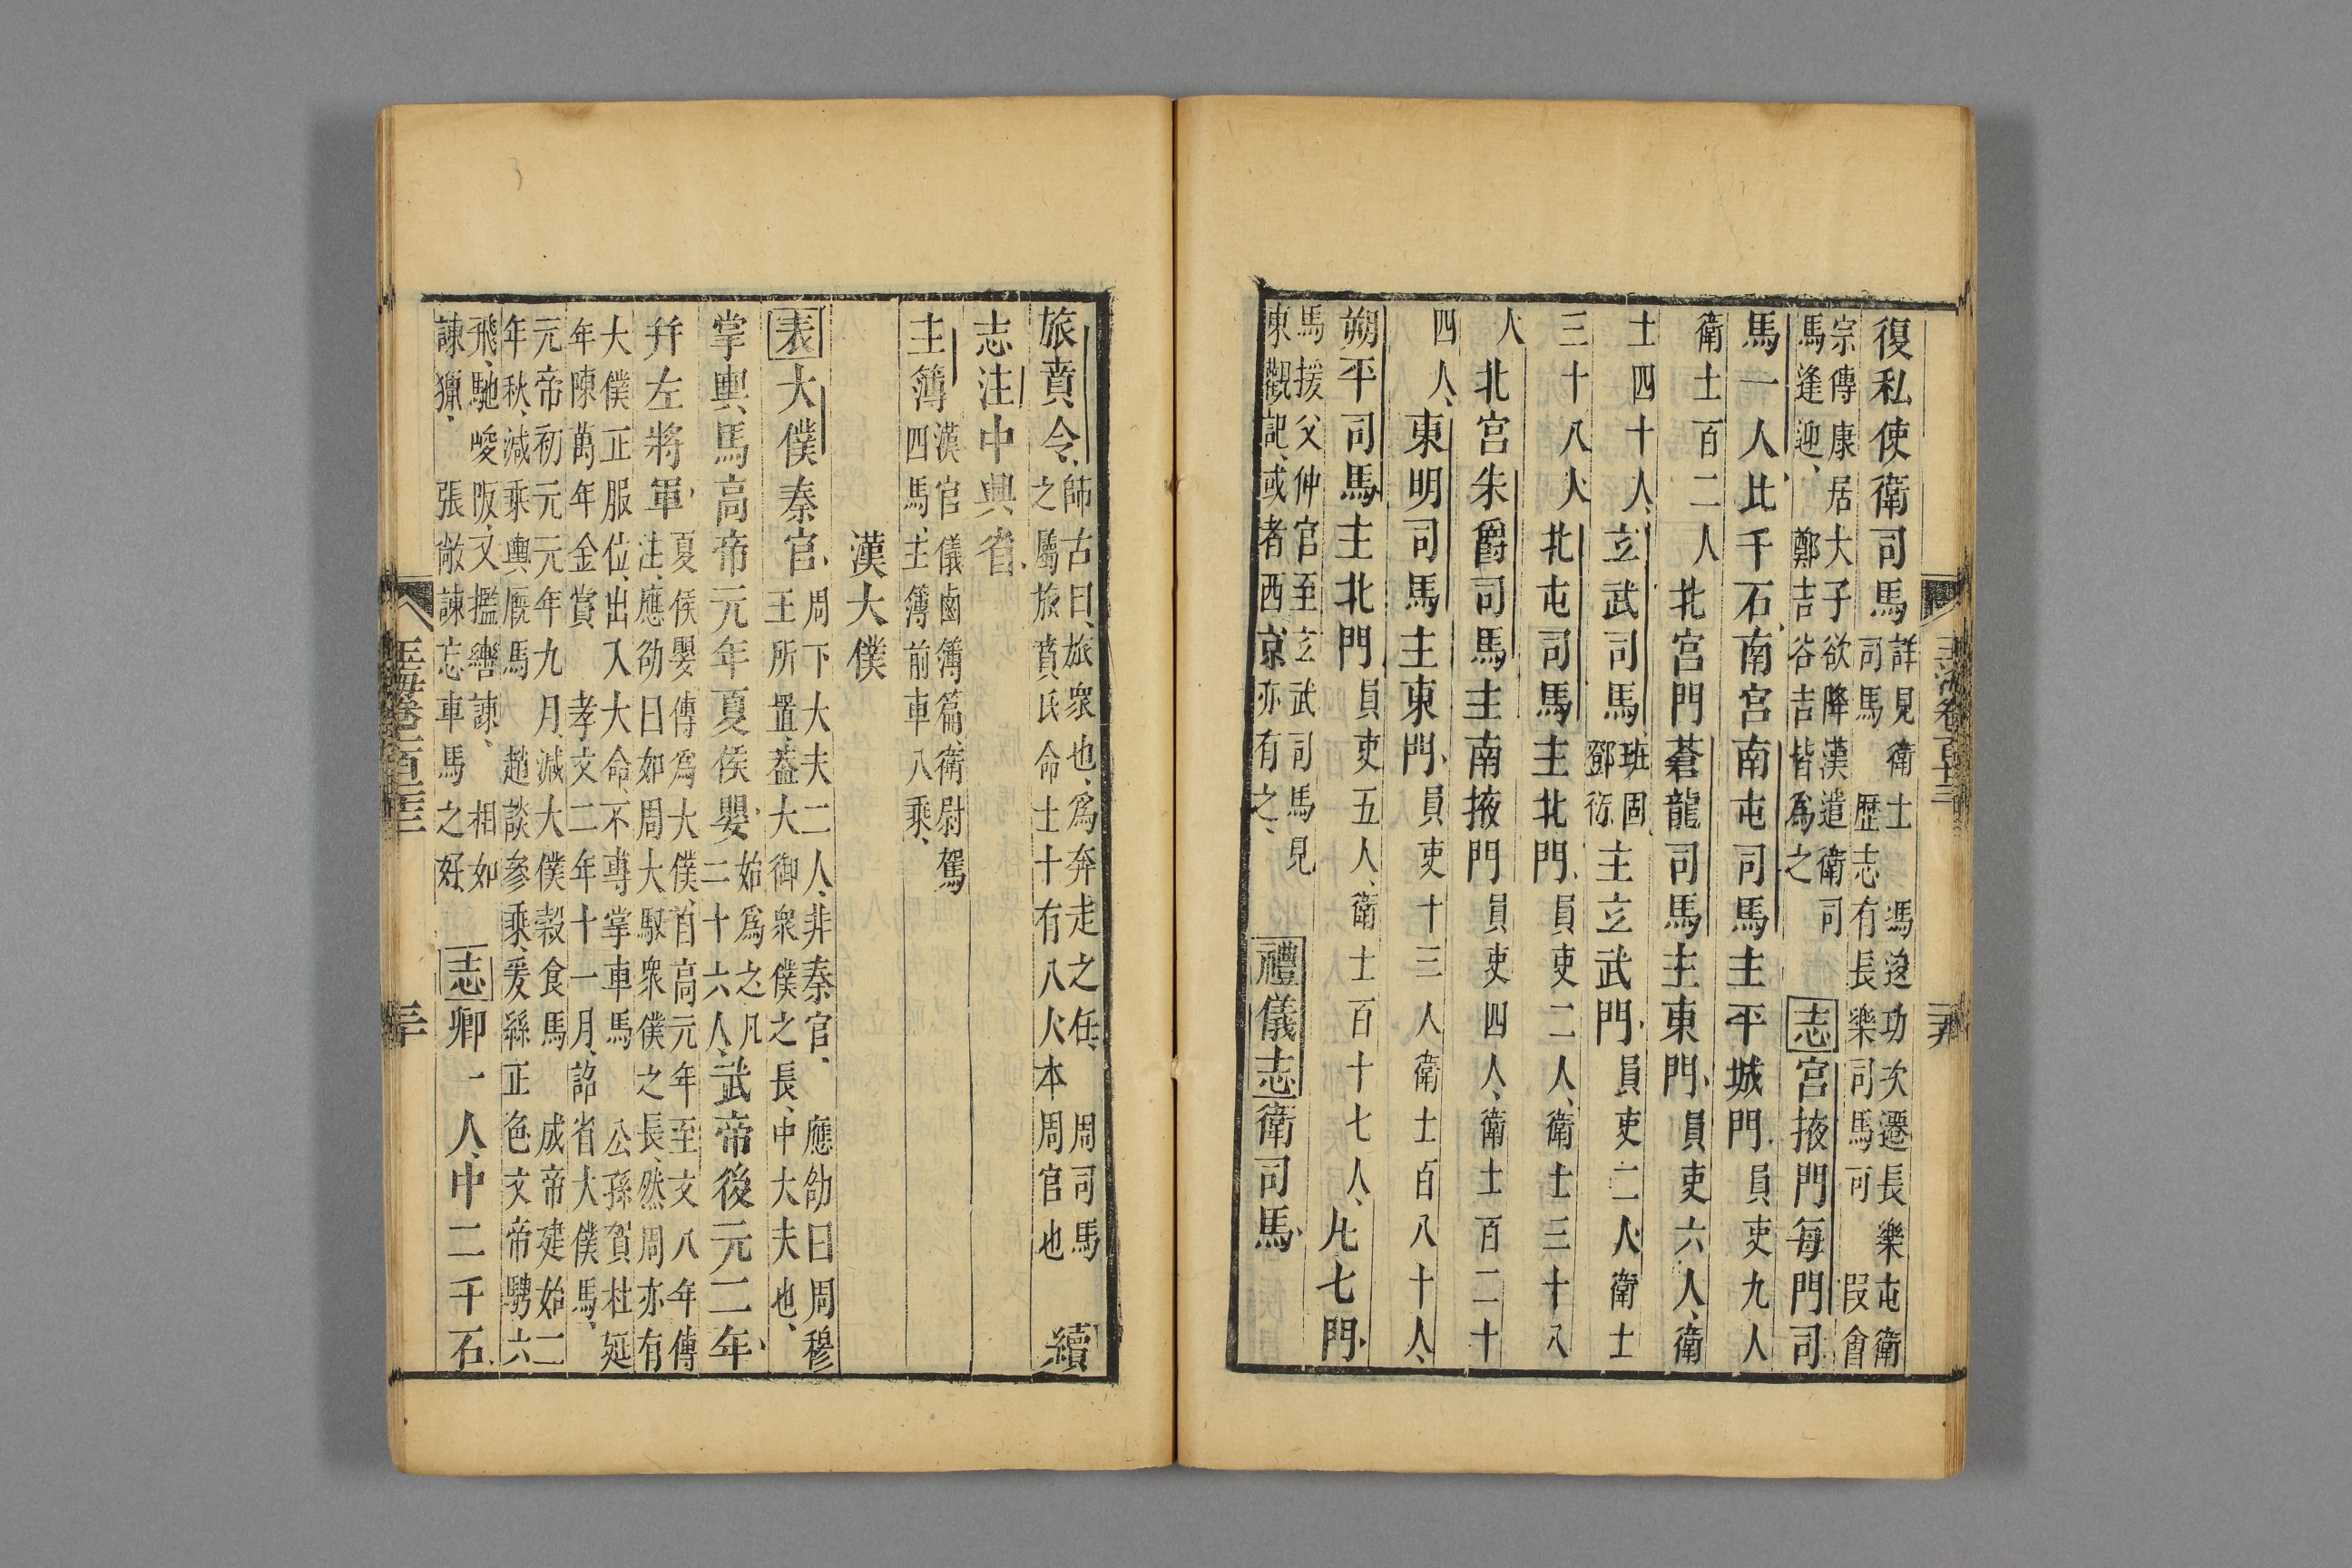 復私使衛司馬詳見衛士 馮逡功次遷長樂屯衛司馬 歷志有長樂司馬可 段會
宗傳康居大子欲降漢遣衛司馬逢迎 鄭吉谷吉皆為之志宮掖門每門司
馬一人比千石南宮南屯司馬主平城門員吏九人
衛士百二人北宮門蒼龍司馬主東門員吏六人衛
士四十人玄武司馬班固鄧衍主玄武門員吏二人衛士
三十八人北屯司馬主北門員吏二人衛士三十八
人北宮朱爵司馬主南掖門員吏四人衛士百二十
四人東明司馬主東門員吏十三人衛士百八十人
朔平司馬主北門員吏五人衛士百十七人凡七門
馬援父仲官至玄武司馬見東觀記或者西京亦有之禮儀志衛司馬
玉海卷百二十三
二十九
旅賁令師古曰旅眾也為奔走之任 周司馬之屬旅賁氏命士十有八人本周官也續
志注中興省
主簿漢官儀鹵簿篇衛尉駕四馬主簿前車八乘
漢大僕
表大僕秦官周下大夫二人非秦官 應劭曰周穆王所置蓋大御眾僕之長中大夫也
掌輿馬高帝元年夏侯嬰始為之凡二十六人武帝後元二年
幷左將軍夏侯嬰傳為大僕自高元年至文八年傳注應劭曰如周大馭眾僕之長然周亦有
大僕正服位出入大命不專掌車馬 公孫賀杜延年陳萬年金賞 孝文二年十一月詔省大僕馬
元帝初元元年九月減大僕穀食馬 成帝建始二年秋減乘輿廄馬 趙談參乘爰絲正色文帝騁六
飛馳峻阪文檻轡諫 相如諫獵 張敞諫忘車馬之好志卿一人中二千石
玉海卷百二十三
三十